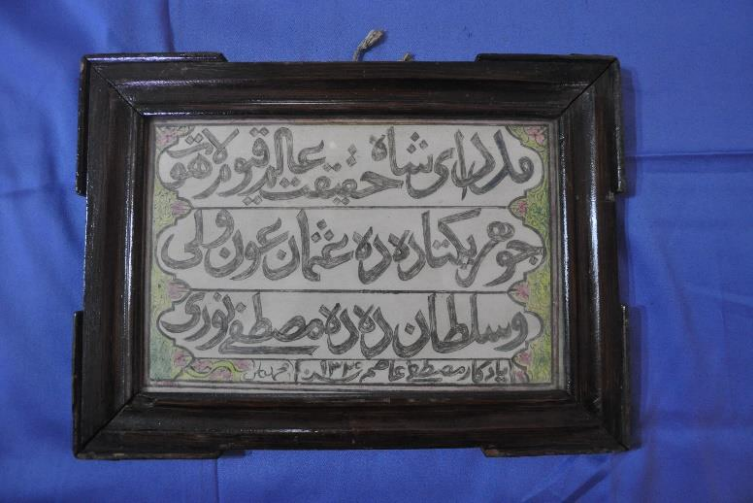 مدد ای شاه حقیقت عالی قیور لاهوت
جوهر یکتا ده ده عثمان عون ولی
وسلطان ده ده مصطفی نوری
یادکار مصطفی عاصم سنه ١٣٢٤